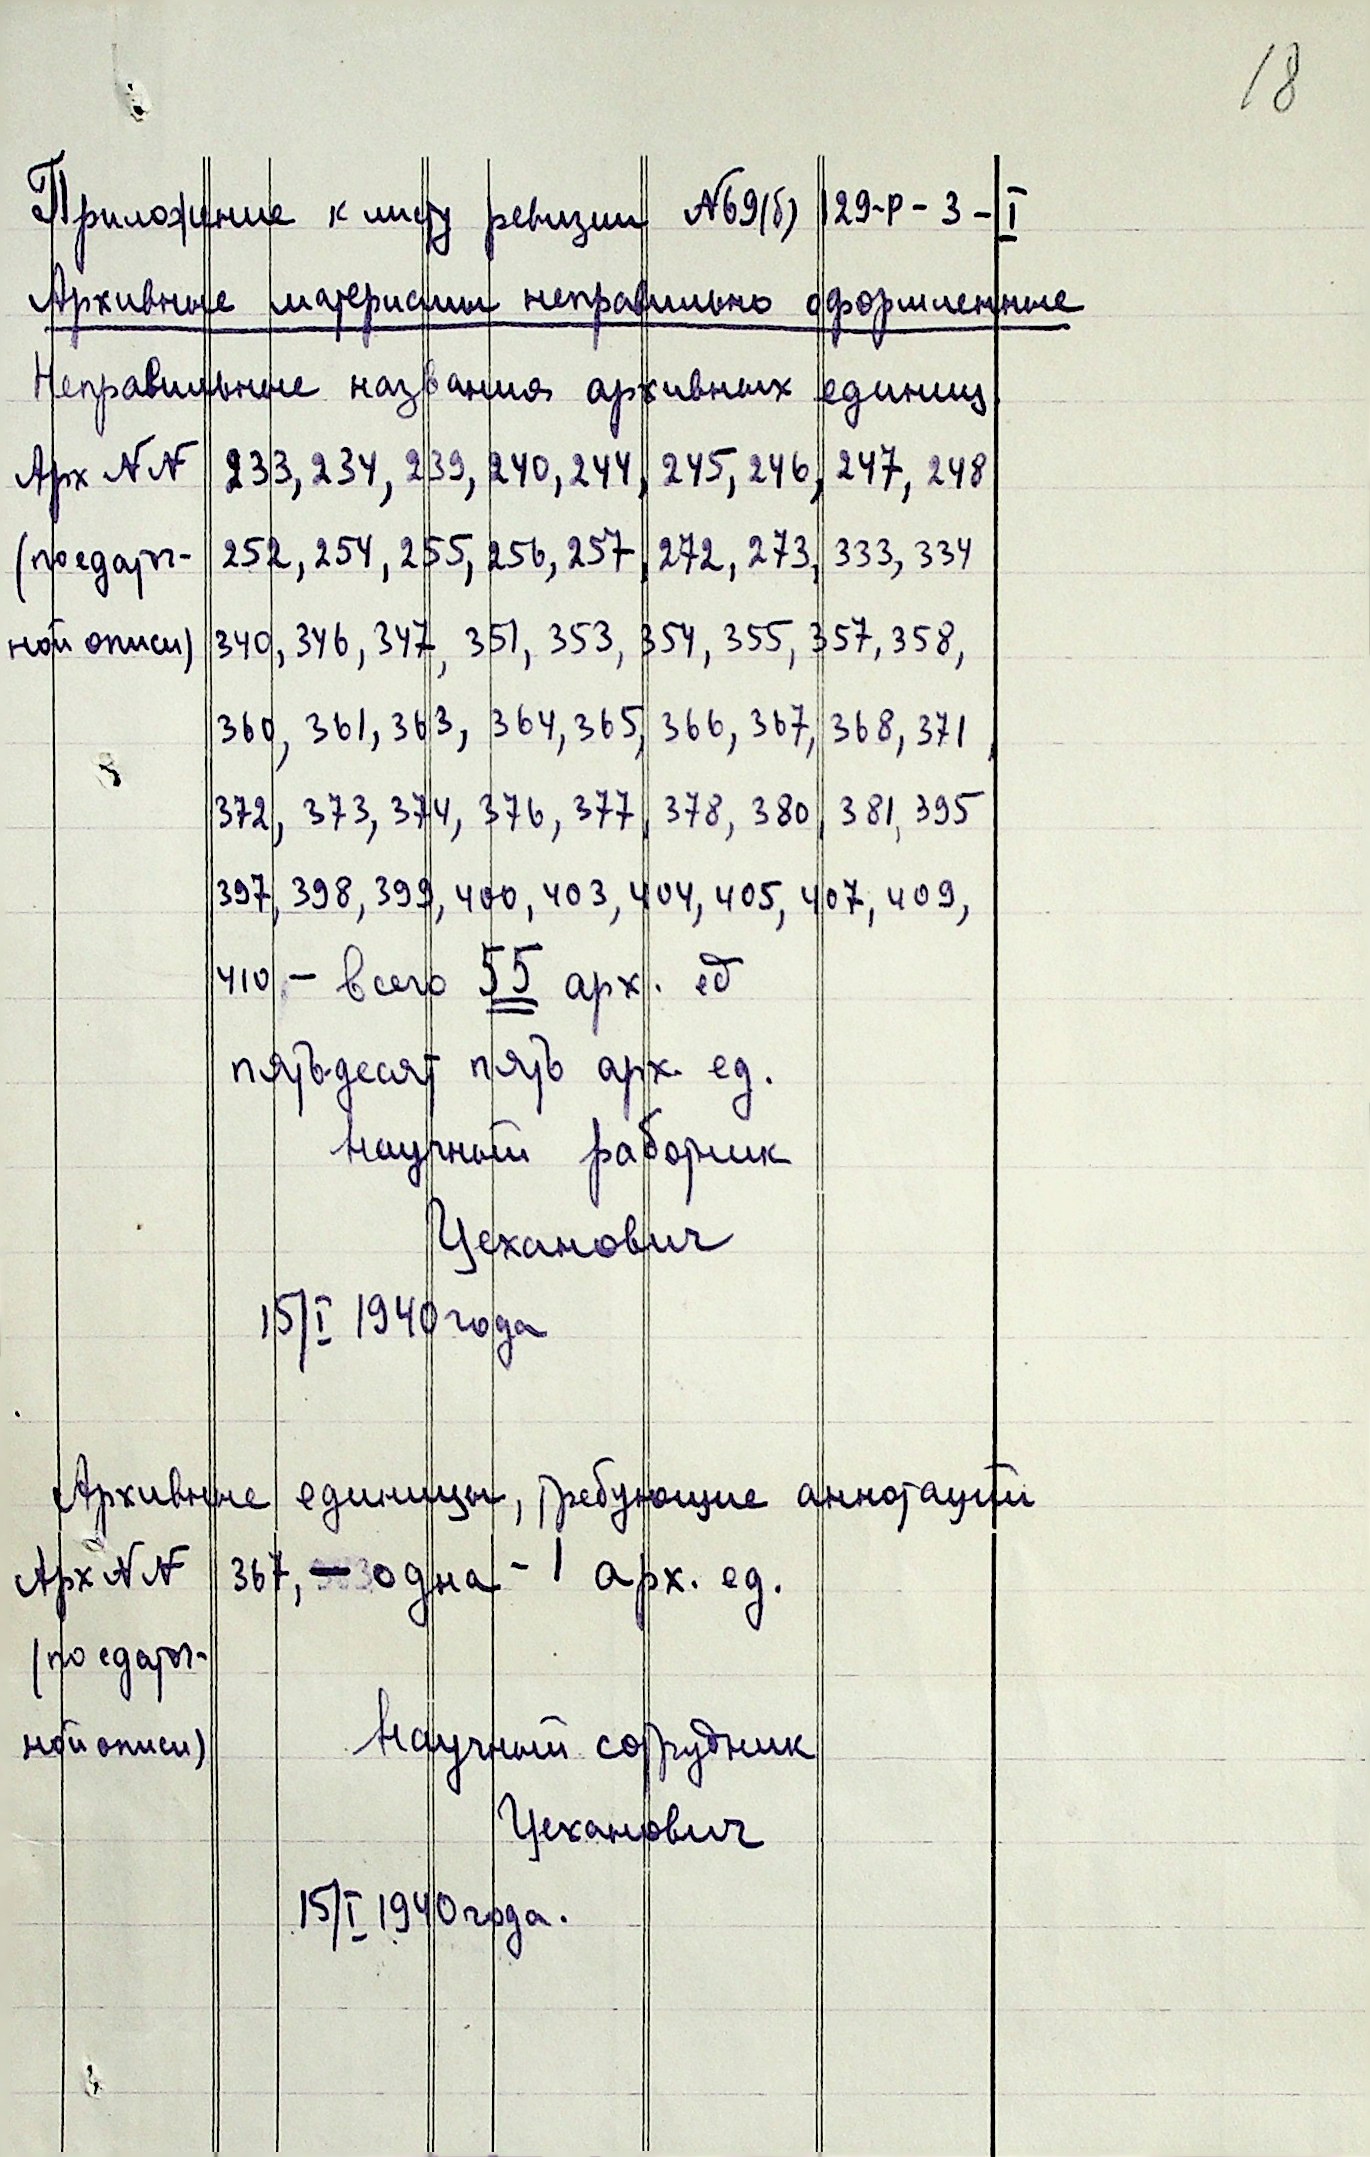 18
Приложение к листу ревизии №69(б) 129-Р-3-I
Архивные материалы неправильно оформленные
Неправильные названия архивных единиц.
Арх №№ 233, 234, 239, 240, 244, 245, 246, 247, 248
(по сдаточ- 252, 254, 255, 256, 257, 272, 273, 333, 334
ной описи) 340, 346, 347, 351, 353, 354, 355, 357, 358,
360, 361, 363, 364, 365, 366, 367, 368, 371,
372, 373, 374, 376, 377, 378, 380, 381, 395
397, 398, 399, 400, 403, 404, 405, 407, 409,
410, - всего 55 арх. ед
пятьдесят пять арх. ед.
Научный работник
Цеханович
15/I 1940 года
Архивные единицы, требующие аннотаций
Арх №№ 367, — одна - 1 арх. ед.
(по сдаточ-
ной описи) Научный сотрудник
Цеханович
15/I 1940 года.